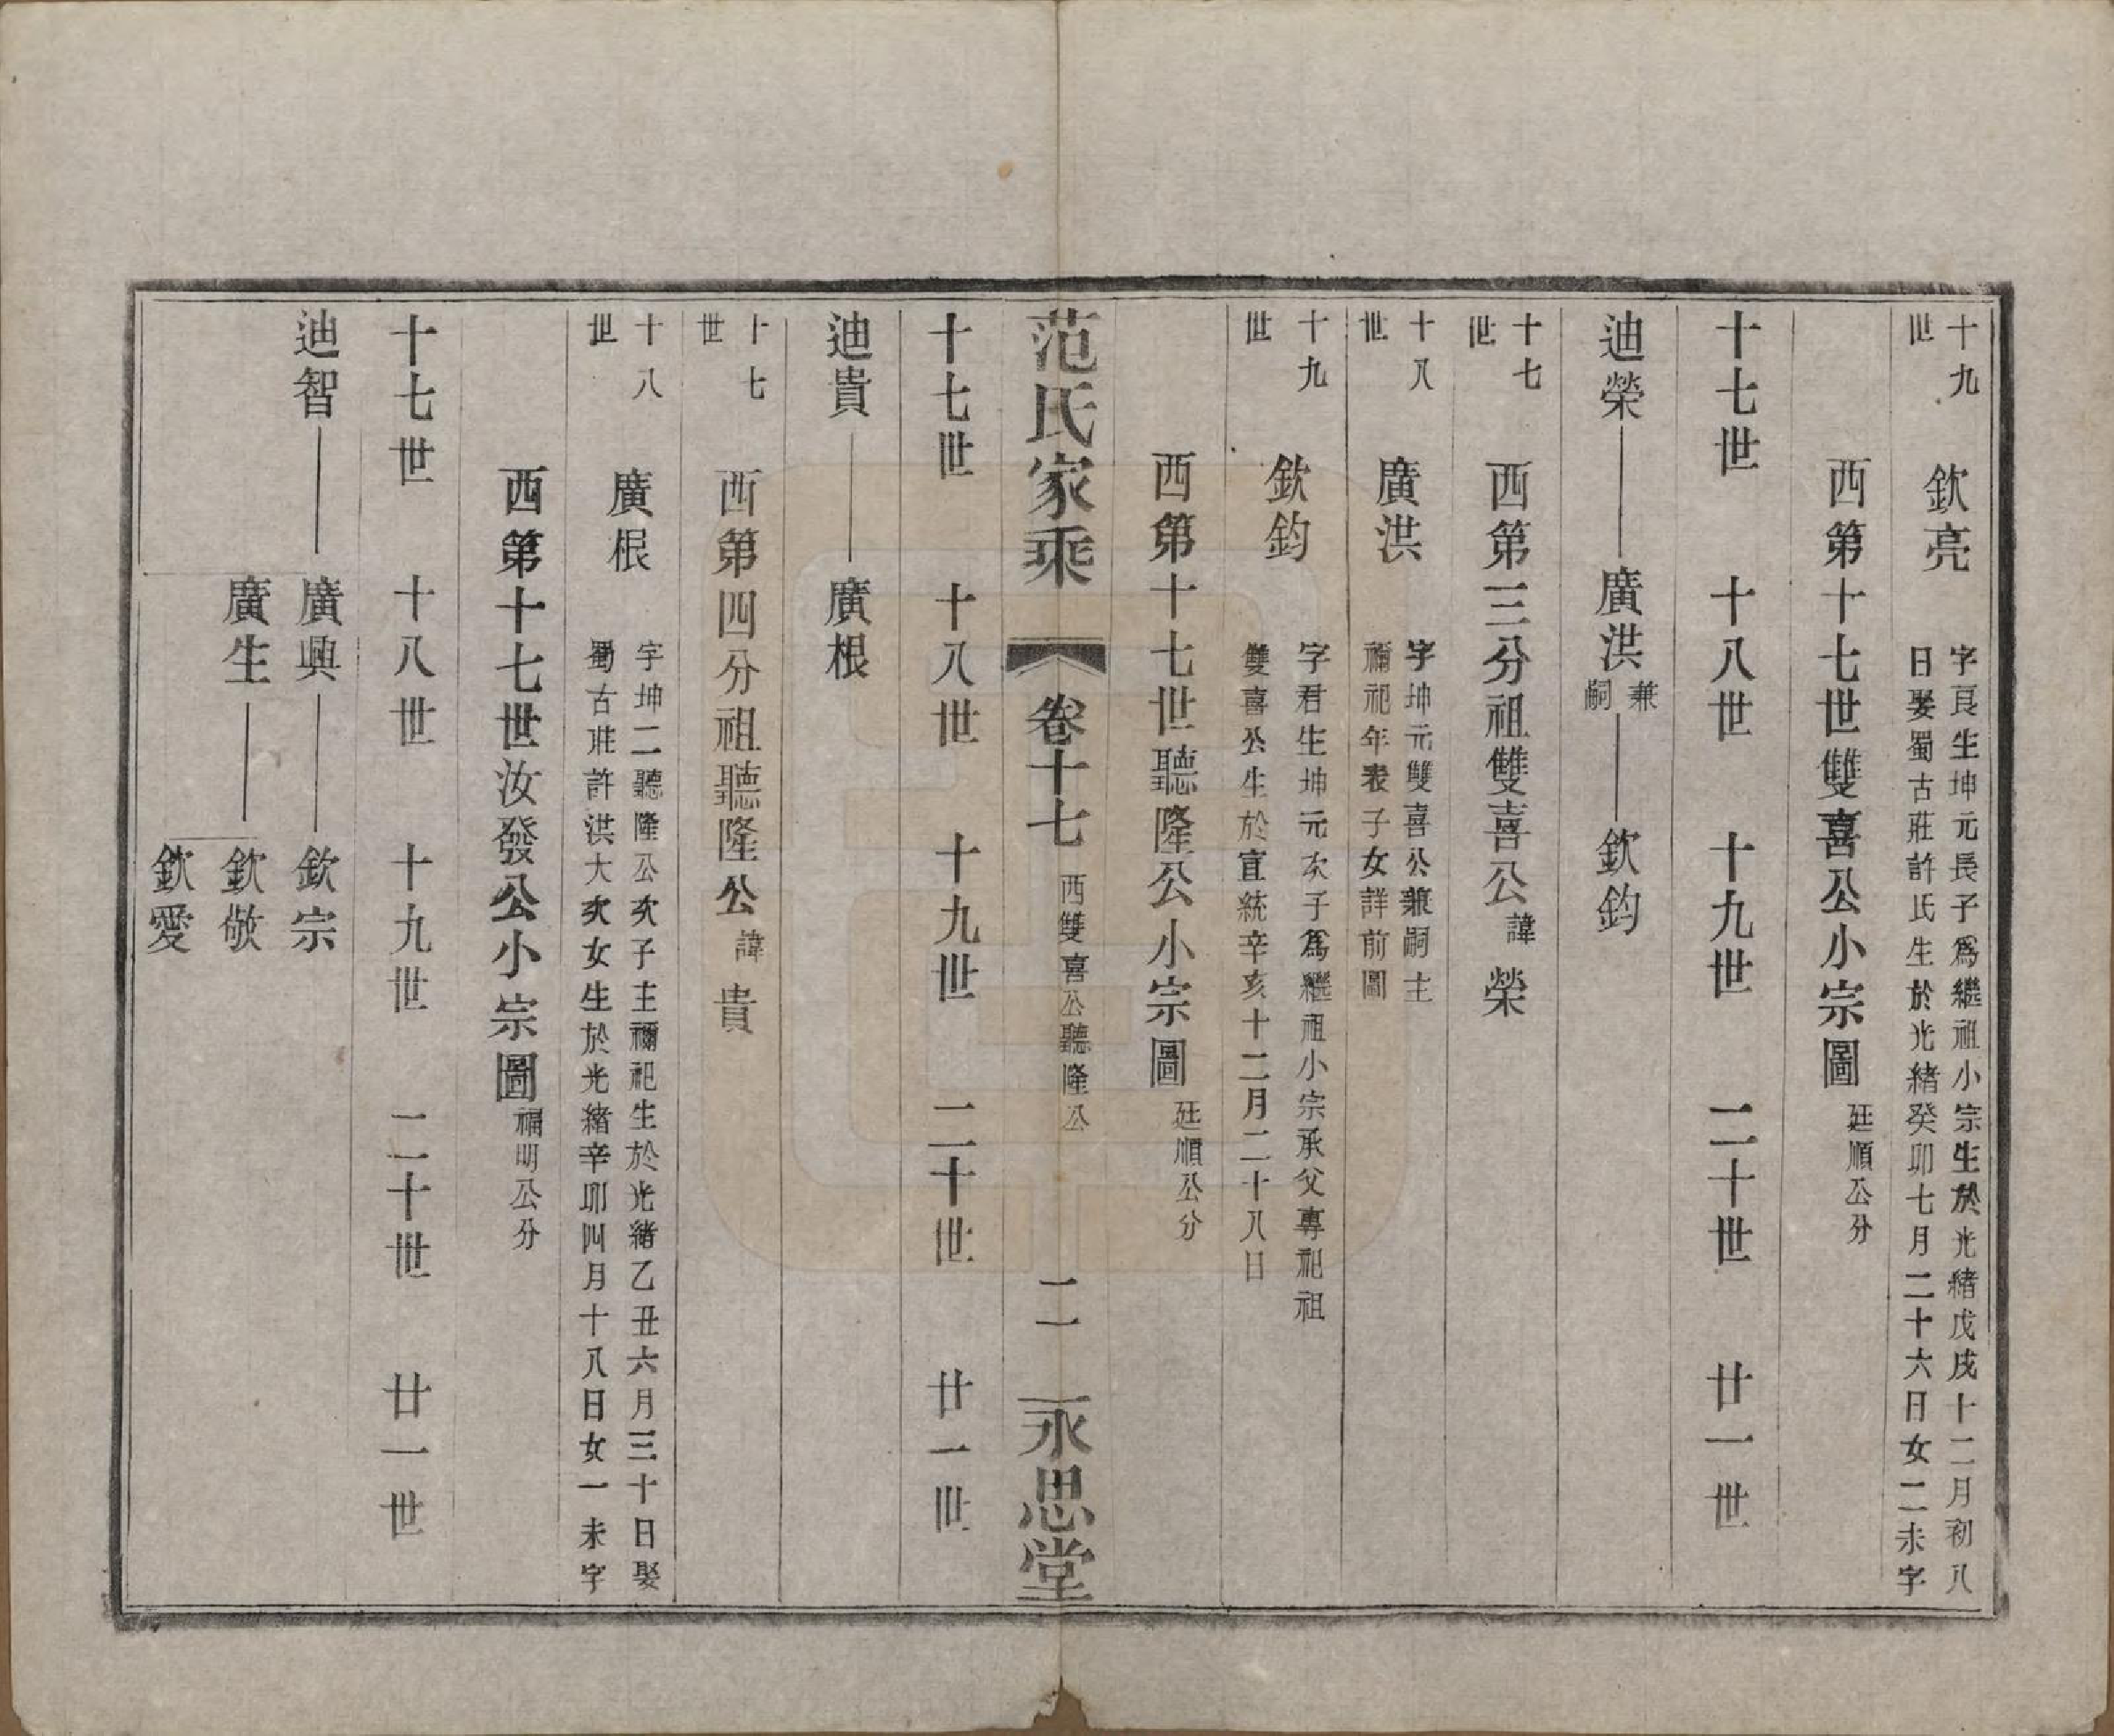 十九世 欽亮 字良生坤元長子爲繼祖小宗生於光緒戊戌十二月初八
日娶蜀古莊許氏生於光緒癸卯七月二十六日女二未字
西第十七世雙喜公小宗圖 廷順公分
十七世 十八世 十九世 二十世 廿一世
迪榮 廣洪 兼嗣 欽鈞
十七世 西第三分祖雙喜公 諱 榮
十八世 廣洪 字坤元雙喜公兼嗣主
禰祀年表子女詳前圖
十九世 欽鈞 字君生坤元次子爲繼祖小宗承父專祀祖
雙喜公生於宣統辛亥十二月二十八日
西第十七世聽隆公小宗圖 廷順公分
范氏家乘 卷十七 西雙喜公聽隆公 二 永思堂
十七世 十八世 十九世 二十世 廿一世
迪貴 廣根
十七世 西第四分祖聽隆公 諱 貴
十八世 廣根 字坤二聽隆公次子主禰祀生於光緒乙丑六月三十日娶
蜀古莊許洪大次女生於光緒辛卯四月十八日女一未字
西第十七世汝發公小宗圖 福明公分
十七世 十八世 十九世 二十世 廿一世
迪智 廣興 欽宗
廣生 欽敬
欽愛